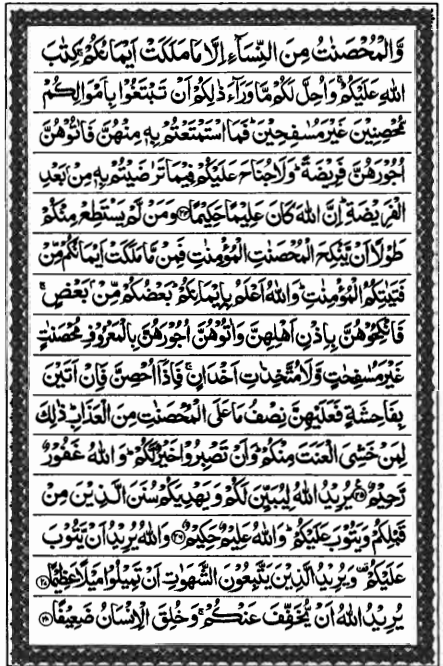 وَّالْمُحْصَنٰتُ مِنَ النِّسَآءِ اِلَّا مَا مَلَكَتْ اَيْمَانُكُمْ ۚ كِتٰبَ
اللّٰهِ عَلَيْكُمْ ۚ وَاُحِلَّ لَكُمْ مَّا وَرَآءَ ذٰلِكُمْ اَنْ تَبْتَغُوْا بِاَمْوَالِكُمْ
مُّحْصِنِيْنَ غَيْرَ مُسٰفِحِيْنَ ؕ فَمَا اسْتَمْتَعْتُمْ بِهٖ مِنْهُنَّ فَاٰتُوْهُنَّ
اُجُوْرَهُنَّ فَرِيْضَةً ؕ وَلَا جُنَاحَ عَلَيْكُمْ فِيْمَا تَرٰضَيْتُمْ بِهٖ مِنْۢ بَعْدِ
الْفَرِيْضَةِ ؕ اِنَّ اللّٰهَ كَانَ عَلِيْمًا حَكِيْمًا ﴿۲۴﴾ وَمَنْ لَّمْ يَسْتَطِعْ مِنْكُمْ
طَوْلًا اَنْ يَّنْكِحَ الْمُحْصَنٰتِ الْمُؤْمِنٰتِ فَمِنْ مَّا مَلَكَتْ اَيْمَانُكُمْ مِّنْ
فَتَيٰتِكُمُ الْمُؤْمِنٰتِ ؕ وَاللّٰهُ اَعْلَمُ بِاِيْمَانِكُمْ ؕ بَعْضُكُمْ مِّنْۢ بَعْضٍ ۚ
فَانْكِحُوْهُنَّ بِاِذْنِ اَهْلِهِنَّ وَاٰتُوْهُنَّ اُجُوْرَهُنَّ بِالْمَعْرُوْفِ مُحْصَنٰتٍ
غَيْرَ مُسٰفِحٰتٍ وَّلَا مُتَّخِذٰتِ اَخْدَانٍ ۚ فَاِذَاۤ اُحْصِنَّ فَاِنْ اَتَيْنَ
بِفَاحِشَةٍ فَعَلَيْهِنَّ نِصْفُ مَا عَلَى الْمُحْصَنٰتِ مِنَ الْعَذَابِ ؕ ذٰلِكَ
لِمَنْ خَشِىَ الْعَنَتَ مِنْكُمْ ؕ وَاَنْ تَصْبِرُوْا خَيْرٌ لَّكُمْ ؕ وَاللّٰهُ غَفُوْرٌ
رَّحِيْمٌ ﴿۲۵﴾ يُرِيْدُ اللّٰهُ لِيُبَيِّنَ لَكُمْ وَيَهْدِيَكُمْ سُنَنَ الَّذِيْنَ مِنْ
قَبْلِكُمْ وَيَتُوْبَ عَلَيْكُمْ ؕ وَاللّٰهُ عَلِيْمٌ حَكِيْمٌ ﴿۲۶﴾ وَاللّٰهُ يُرِيْدُ اَنْ يَّتُوْبَ
عَلَيْكُمْ ۟ وَيُرِيْدُ الَّذِيْنَ يَتَّبِعُوْنَ الشَّهَوٰتِ اَنْ تَمِيْلُوْا مَيْلًا عَظِيْمًا ﴿۲۷﴾
يُرِيْدُ اللّٰهُ اَنْ يُّخَفِّفَ عَنْكُمْ ۚ وَخُلِقَ الْاِنْسَانُ ضَعِيْفًا ﴿۲۸﴾